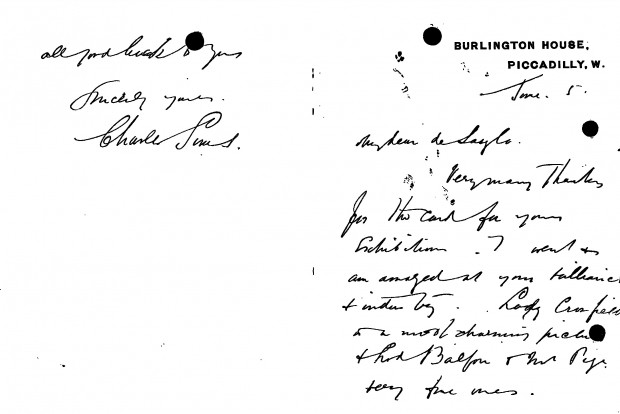 BURLINGTON HOUSE,
PICCADILLY, W.
June. 5.
My dear de Laszlo.
Very many Thanks
for the card for your
Exhibition. I went &
am amazed at your brilliance
& industry. Lady Crosfield
is a most charming picture
& Lord Balfour & Mr Page
very fine ones.
all good luck to you
Sincerely yours.
Charles Sims.